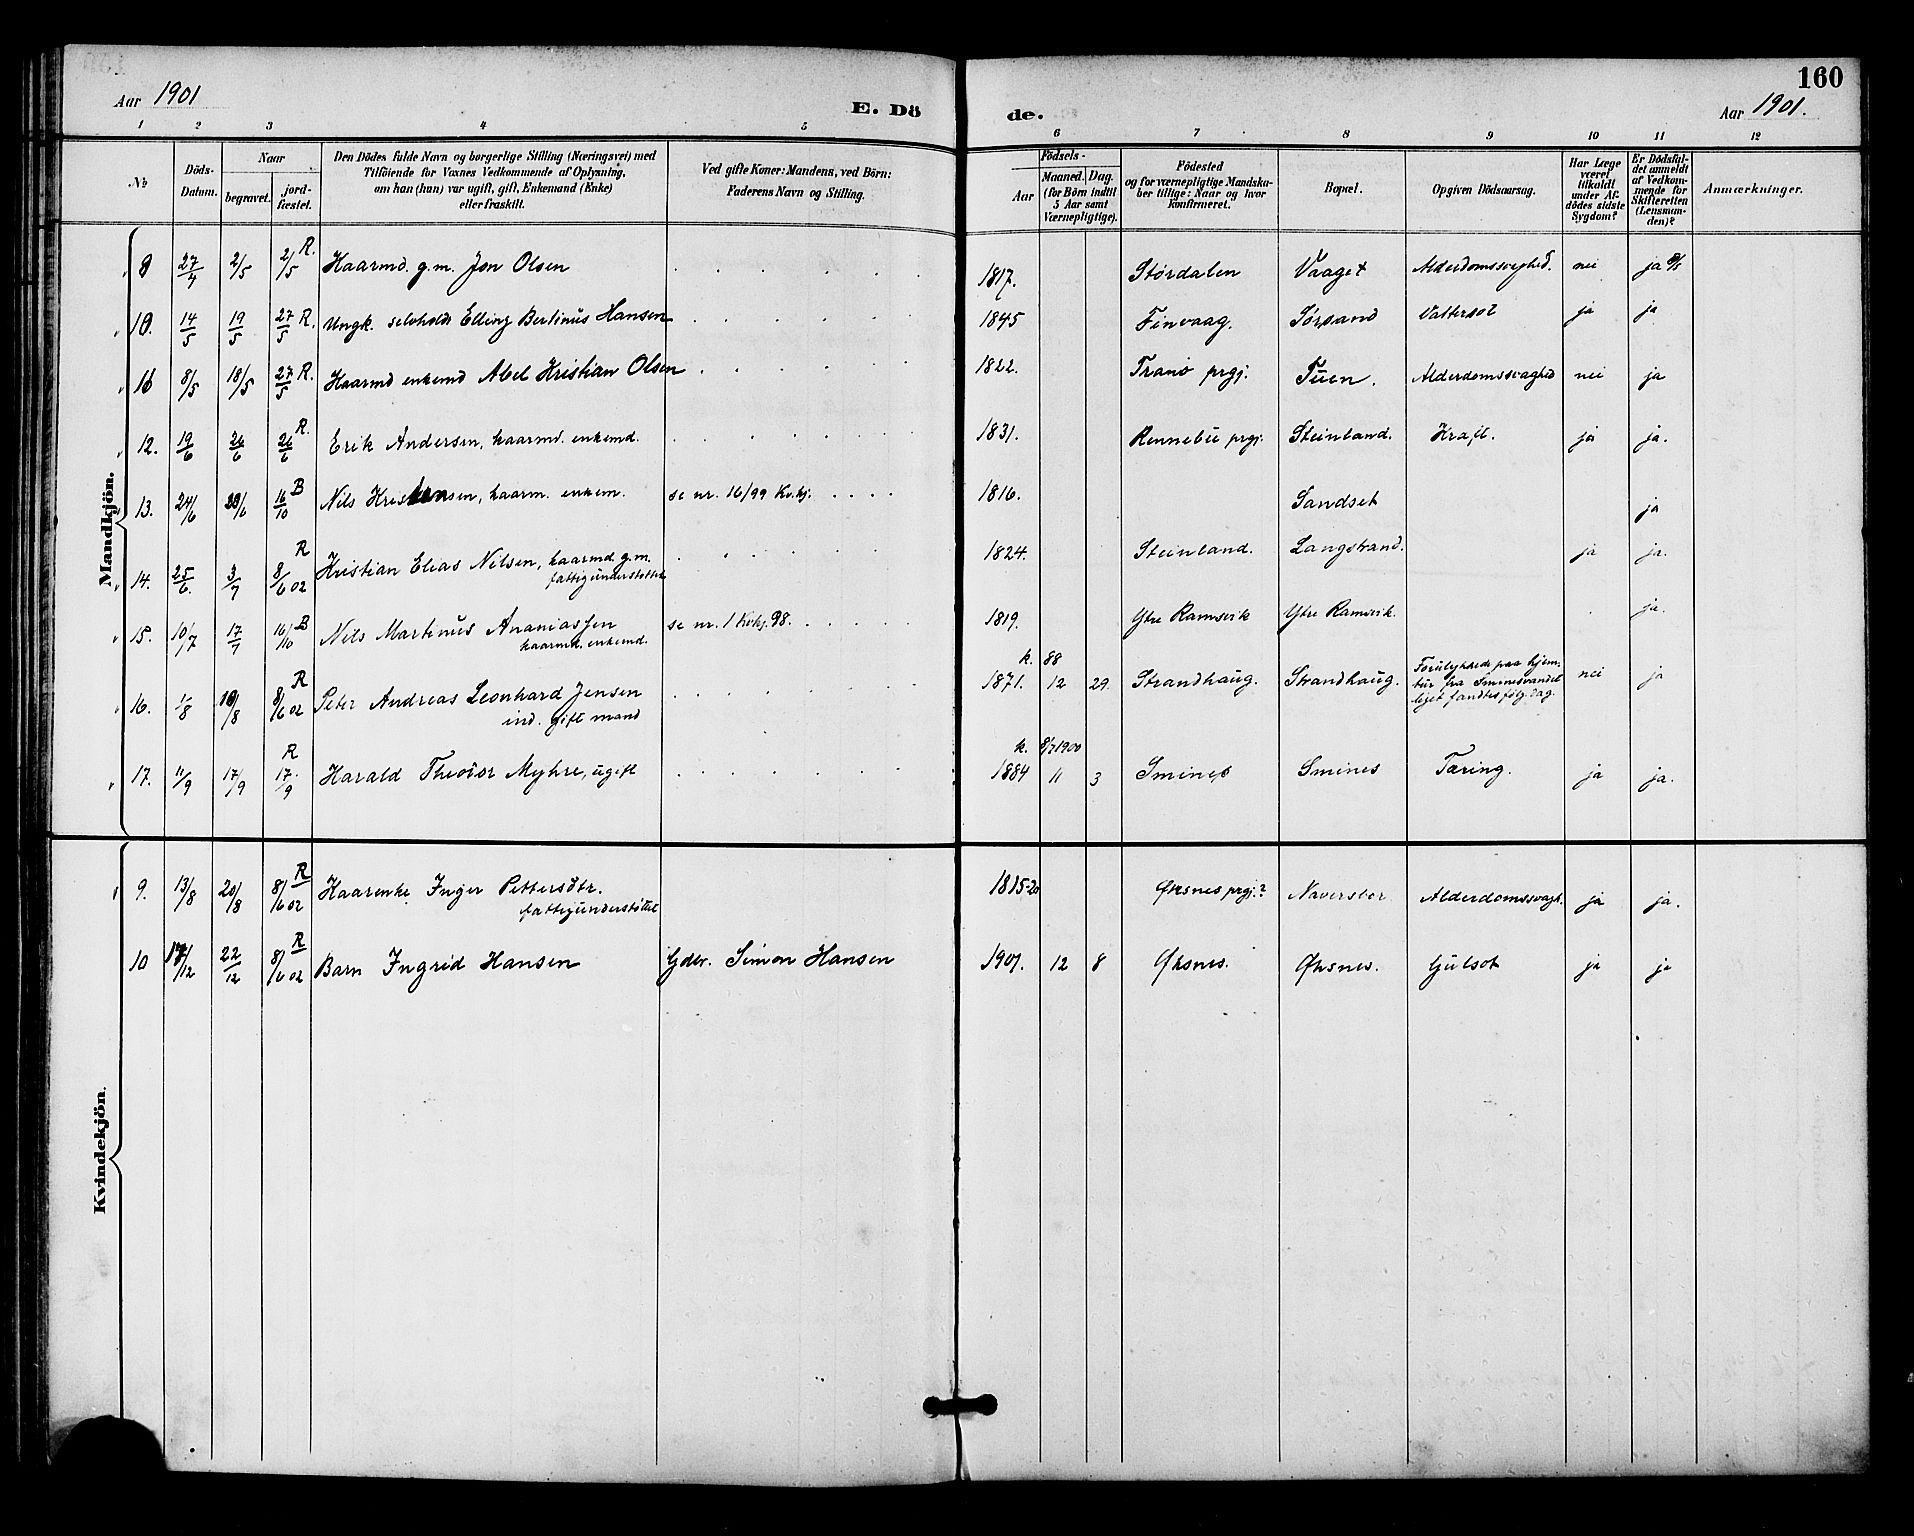 160
Aar 1901
E. Dö
de.
Aar 1901.
1 2 3 4 5 6 7 8 9 10 11 12
No
Döds-
Datum.
Naar
begravet.
jord-
fæstet.
Den Dödes fulde Navn og borgerlige Stilling (Næringsvei) med
Tilföiende for Voxnes Vedkommende af Oplysning,
om han (hun) var ugift, gift, Enkemand (Enke)
eller fraskilt.
Ved gifte Koner: Mandens, ved Börn:
Faderens Navn og Stilling.
Födsels-
Aar
Maaned. Dag.
(for Börn indtil
5 Aar samt
Værnepligtige).
Födested
og for værnepligtige Mandska-
ber tillige: Naar og hvor
konfirmeret.
Bopæl.
Opgiven Dödsaarsag.
Har Læge
været
tilkaldt
under Af-
dödes sidste
Sygdom?
Er Dödsfal-
det anmeldt
af Vedkom-
mende for
Skifteretten
(Lensman-
den)?
Anmærkninger.
Mandkjön.
9 27/4 2/5 2/5 R. Haarmd. g.m. Jon Olsen 1817. Størdalen Vaaget Alderdomssvaghed. nei ja 8/5
10. 14/5 19/5 27/5 R. Ungk. selvholds Elling Bertinus Hansen 1845 Finvaag. Sørsand Vattersot ja ja
11 8/5 18/5 27/5 R. Haarmd enkemd Abel Kristian Olsen 1822. Tranø prgj. Tuen. Alderdomssvaghed nei ja
12. 19/6 26/6 26/6 R. Erik Andersen, haarmd. enkemd. 1831. Rennebu prgj. Steinland. Kraft. ja ja.
13. 24/6 28/6 16/10 B Nils Kristensen, haarm. enkem. se nr. 16/99 Kv.kj. 1816. Sandset ja
14. 25/6. 3/7 8/6 02 R Kristian Elias Nilsen, haarmd. g.m.
fattigunderstøttet 1824. Steinland. Langstrand. ja ja.
15. 10/7 17/7 16/10 B Nils Martinus Ananiassen
haarmd. enkemd. se nr. 1 Kvkj. 98. 1819. Ytre Ramsvik Ytre Ramsvik. ja.
16. 1/8 10/8 8/6 02 R Peter Andreas Leonhard Jensen
ind. gift mand k. 88
1871. 12 29. Strandhaug. Strandhaug. Forulykkede paa hjem-
tur fra Sminesvandet
liget fandtes følg. dag. nei ja
17. 11/9 17/9 17/9 R Harald Theodor Myhre, ugift k. 8/7 1900
1884 11 3 Smines Smines Tæring. ja ja.
Kvindekjön.
9. 13/8 20/8 8/6 02 R Kaarenke Inger Pettersdtr.
fattigunderstøttet 1815-20 Øksnes prgj.? Naverstor Alderdomssvagh. ja ja.
10 17/12 22/12 8/6 02 R Barn Ingrid Hansen Gdbr. Simon Hansen 1901. 12 8 Øksnes. Øksnes. Gulsot ja ja